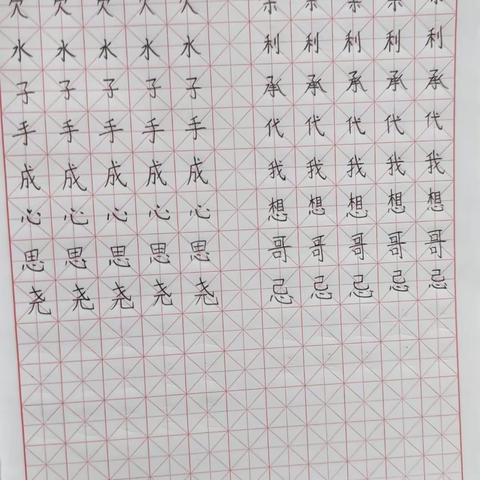 欠 欠 欠 欠 欠
水 水 水 水 水 利 利 利 利 利
子 子 子 子 子 承 承 承 承 承
手 手 手 手 手 代 代 代 代 代
成 成 成 成 成 我 我 我 我 我
心 心 心 心 心 想 想 想 想 想
思 思 思 思 思 哥 哥 哥 哥 哥
尧 尧 尧 尧 尧 忌 忌 忌 忌 忌